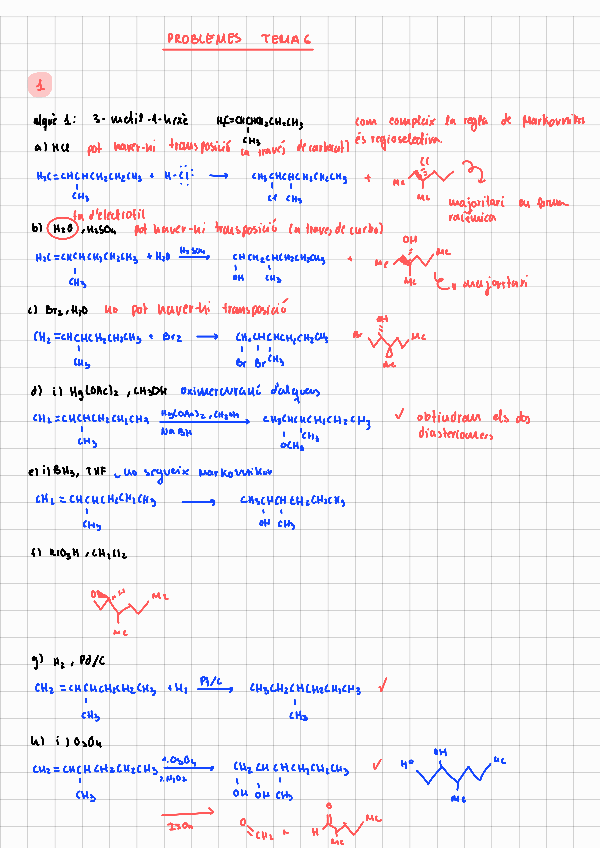 PROBLEMES TEMA 6
1
alquè 1: 3-metil-1-hexè H2C=CHCHCH2CH2CH3
CH3
com compleix la regla de Markovnikov
és regioselectiva.
a) HCl pot haver-hi transposició (a través de carbocatió)
H2C=CHCHCH2CH2CH3 + H-Cl: → CH3CHCHCH2CH2CH3 +
CH3 Cl CH3
Cl
Me
Me
majoritari en forma
racèmica
fa d'electròfil
b) H2O, H2SO4 pot haver-hi transposició (a través de carbo)
H2C=CHCHCH2CH2CH3 + H2O H2SO4 → CH3CHCHCH2CH2CH3 +
CH3 OH CH3
OH
Me Me
Me
majoritari
c) Br2, H2O no pot haver-hi transposició
CH2=CHCHCH2CH2CH3 + Br2 → CH2CHCHCH2CH2CH3
CH3 Br Br CH3
OH
Br Me
Me
d) i) Hg(OAc)2, CH3OH oximercuriació d'alquens
CH2=CHCHCH2CH2CH3 Hg(OAc)2, CH3OH → CH3CHCHCH2CH2CH3
NaBH
CH3 OCH3 CH3
✓ obtindrem els dos
diasteròmers
e) i) BH3, THF no segueix markovnikov
CH2=CHCHCH2CH2CH3 → CH3CHCHCH2CH2CH3
CH3 OH CH3
f) RCO3H, CH2Cl2
O H Me
Me
g) H2, Pd/C
CH2=CHCHCH2CH2CH3 + H2 Pd/C → CH3CH2CHCH2CH2CH3 ✓
CH3 CH3
h) i) OsO4
CH2=CHCHCH2CH2CH3 1. OsO4 → CH2CHCHCH2CH2CH3 ✓
2. H2O2
CH3 OH OH CH3
HO OH Me
Me
O CH2 + H O Me
Me